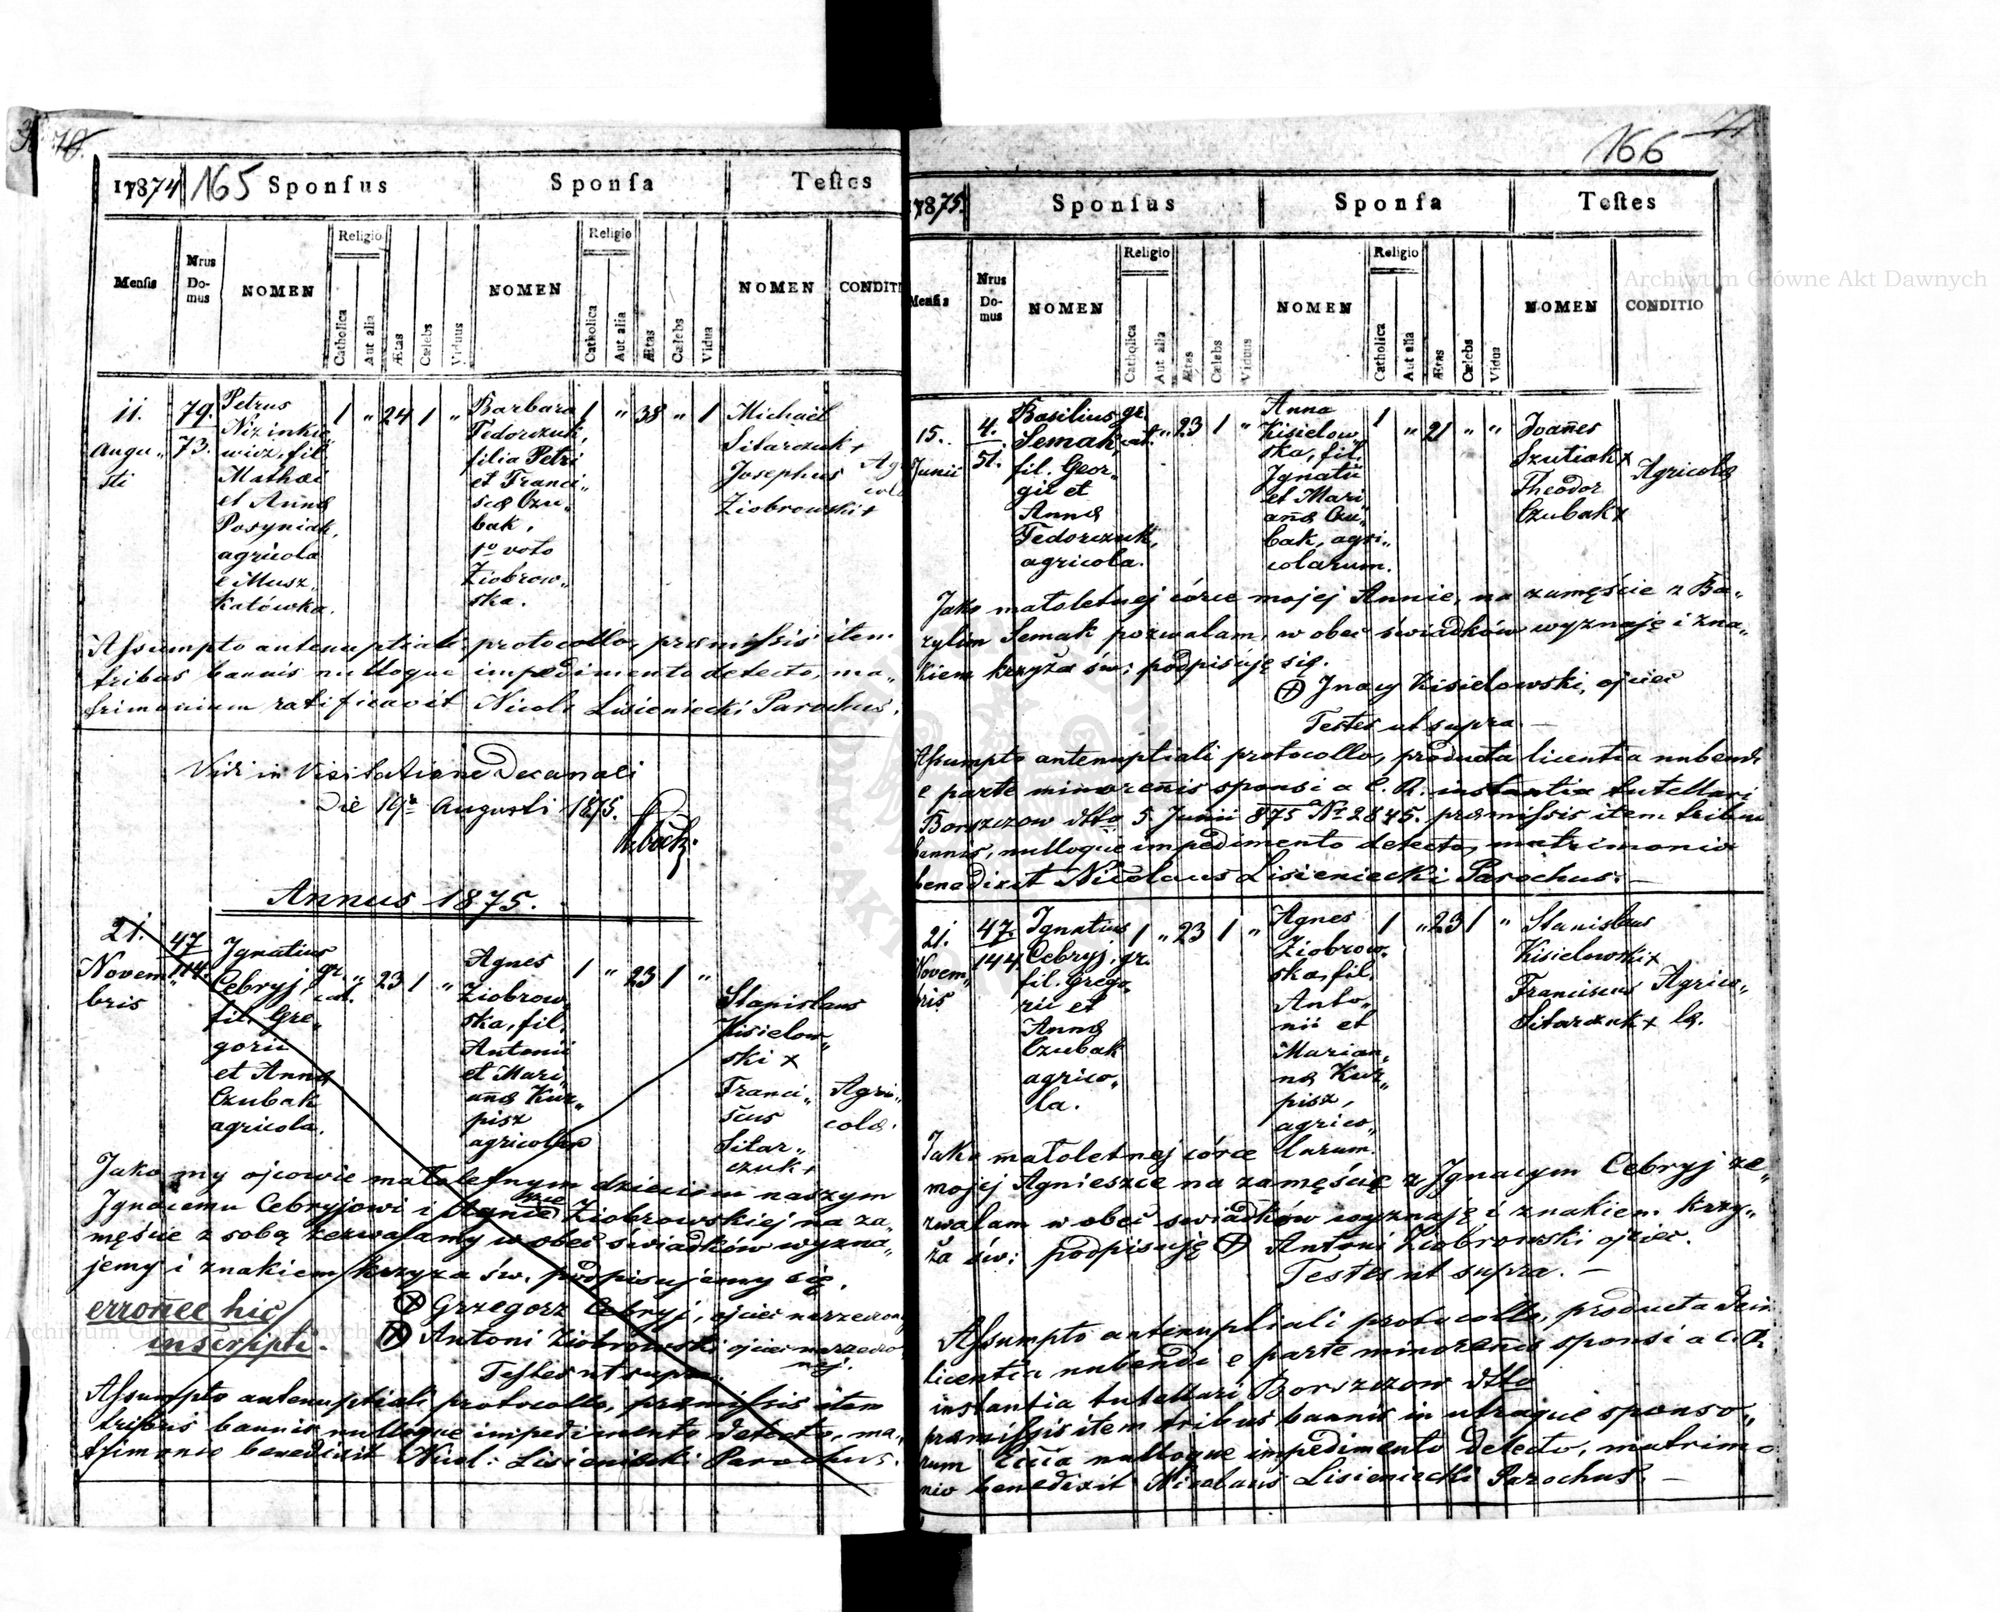 165
1874 Sponsus Sponsa Testes
Mensis Nrus Domus NOMEN Religio Catholica Aut alia Ætas Cælebs Viduus NOMEN Religio Catholica Aut alia Ætas Cælebs Vidua NOMEN CONDITI
11. Augu„sti
79. 73.
Petrus
Nizinkie„
wicz, fil.
Mathæi
et Annæ
Posyniak,
agricola
e Musz„
katówka.
1 „ 24 1 „
Barbara
Fedorczuk,
filia Petri
et Franci„
scæ Czu„
bak,
1º voto
Ziobrow„
ska.
1 „ 38 „ 1
Michael
Sitarczuk +
Josephus
Ziobrowski +
Assumpto antenuptiali protocollo, præmissis item
tribus bannis nulloque impedimento detecto, ma„
trimonium ratificavit Nicol: Lisieniecki Parochus.
Vidi in Visitatione Decanali
Die 19 Augusti 1875.
Annus 1875.
21. Novem„bris
47 144.
Ignatius
Cebryj,
fil. Gre„
gorii
et Annæ
Czubak
agricola.
gr. cat. „ 23 1 „
Agnes
Ziobrow„
ska, fil.
Antonii
et Mari„
anæ Kur„
pisz
agricolarum
1 „ 23 1 „
Stanislaus
Kisielow„
ski x
Franci„
scus
Sitar„
czuk +
Agri„
colæ.
Jako my ojcowie małoletnym dzieciom naszym
Ignacemu Cebryjowi i Agnieszce Ziobrowskiej na za„
męście z sobą zezwalamy w obec świadków wyzna„
jemy i znakiem krzyża św. podpisujemy się.
erronee hic
inscripti.
Grzegorz Cebryj, ojciec
Antoni Ziobrowski ojciec
Testes ut supra.
Assumpto antenuptiali protocollo, præmissis item
tribus bannis nulloque impedimento detecto, ma„
trimonio benedixit Nicol: Lisieniecki Parochus.
166
1875. Sponsus Sponsa Testes
Mensis Nrus Domus NOMEN Religio Catholica Aut alia Ætas Cælebs Viduus NOMEN Religio Catholica Aut alia Ætas Cælebs Vidua NOMEN CONDITIO
15. Junii
4. 51.
Basilius
Semak,
fil. Geor„
gii et
Annæ
Fedorczuk,
agricola.
gr. cat. „ 23 1 „
Anna
Kisielow„
ska, fil.
Ignatii
et Mari„
anæ Czu„
bak, agri„
colarum.
1 „ 21 „ „
Joannes
Szutiak x
Theodor
Czubak x
Agricolæ
Jako małoletnej córce mojej Annie, na zamęście z Ba„
zylim Semak pozwalam, w obec świadków wyznaję i zna„
kiem krzyża św: podpisuję się.
Ignacy Kisielowski, ojciec
Testes ut supra —
Assumpto antenuptiali protocollo, producta licentia nubendi
e parte minorenis sponsi a C. R. instantia tutellari
Borszczow dtto 5. Junii 875 Nº 2845. præmissis item tribus
bannis, nulloque impedimento detecto, matrimonio
benedixit Nicolaus Lisieniecki Parochus. —
21. Novem„bris
47. 144
Ignatius
Cebryj,
fil. Grego„
rii et
Annæ
Czubak
agrico„
la.
1 gr. „ 23 1 „
Agnes
Ziobrow„
ska, fil.
Anto„
nii et
Marian„
næ Kur„
pisz,
agrico„
larum.
1 „ 23 1 „
Stanislaus
Kisielowski x
Franciscus
Sitarczuk +
Agrico„
læ.
Jako małoletnej córce
mojej Agnieszce na zamęście z Ignacym Cebryj ze„
zwalam w obec świadków wyznaję i znakiem krzy„
ża św: podpisuję Antoni Ziobrowski ojciec.
Testes ut supra. —
Assumpto antenuptiali protocollo, producta
licentia nubendi e parte minorenis sponsi a C. R.
instantia tutellari Borszczow dtto
præmissis item tribus bannis in utraque sponso„
rum nulloque impedimento detecto, matrimo„
nio benedixit Nicolaus Lisieniecki Parochus. —
Archiwum Główne Akt Dawnych
Archiwum Główne Akt Dawnych